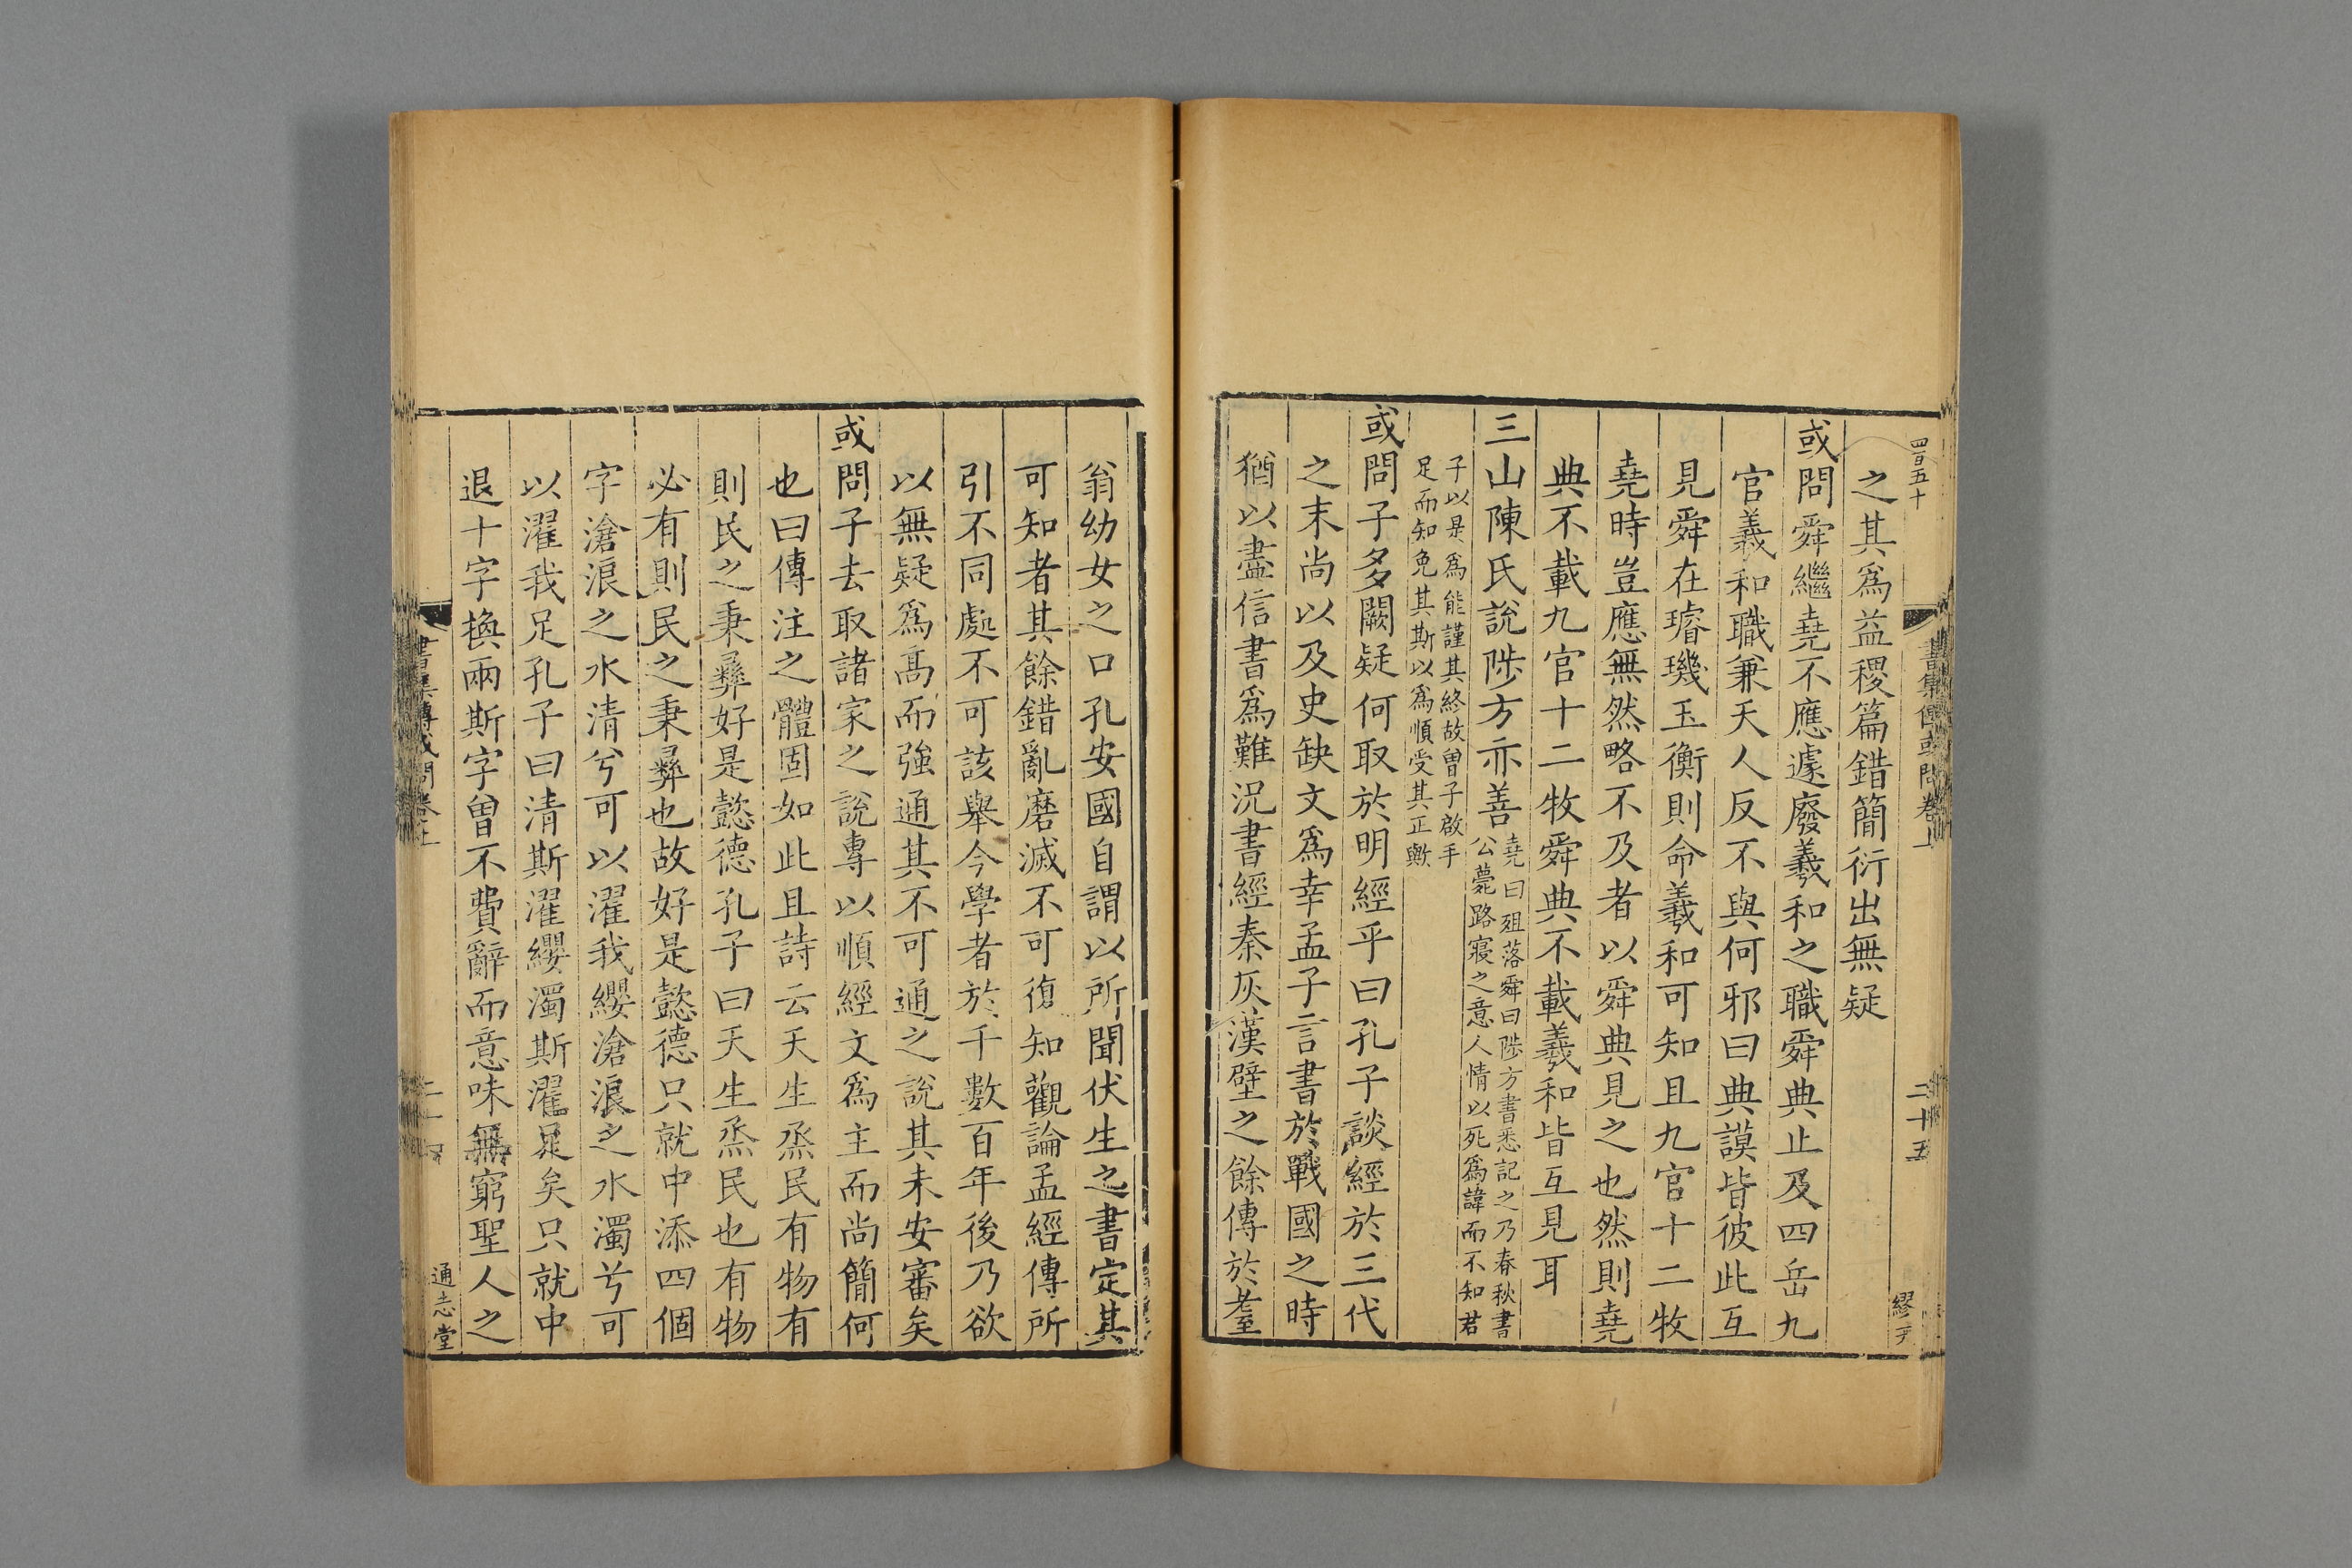 四百五十
書集傳或問卷上
二十五
繆
之其爲益稷篇錯簡衍出無疑
或問舜繼堯不應遽廢羲和之職舜典止及四岳九
官義和職兼天人反不與何邪曰典謨皆彼此互
見舜在璿璣玉衡則命羲和可知且九官十二牧
堯時豈應無然略不及者以舜典見之也然則堯
典不載九官十二牧舜典不載羲和皆互見耳
三山陳氏說陟方亦善
堯曰殂落舜曰陟方書悉記之乃春秋書
公薨路寢之意人情以死爲諱而不知君
子以是爲能謹其終故曾子啟手
足而知免其斯以爲順受其正歟
或問子多闕疑何取於明經乎曰孔子談經於三代
之末尚以及史缺文爲幸孟子言書於戰國之時
猶以盡信書爲難況書經秦灰漢壁之餘傳於耄
翁幼女之口孔安國自謂以所聞伏生之書定其
可知者其餘錯亂磨滅不可復知觀論孟經傳所
引不同處不可該舉今學者於千數百年後乃欲
以無疑爲高而強通其不可通之說其未安審矣
或問子去取諸家之說專以順經文爲主而尚簡何
也曰傳注之體固如此且詩云天生烝民有物有
則民之秉彞好是懿德孔子曰天生烝民也有物
必有則民之秉彞也故好是懿德只就中添四個
字滄浪之水清兮可以濯我纓滄浪之水濁兮可
以濯我足孔子曰清斯濯纓濁斯濯足矣只就中
退十字換兩斯字曾不費辭而意味無窮聖人之
書集傳或問卷上
通志堂